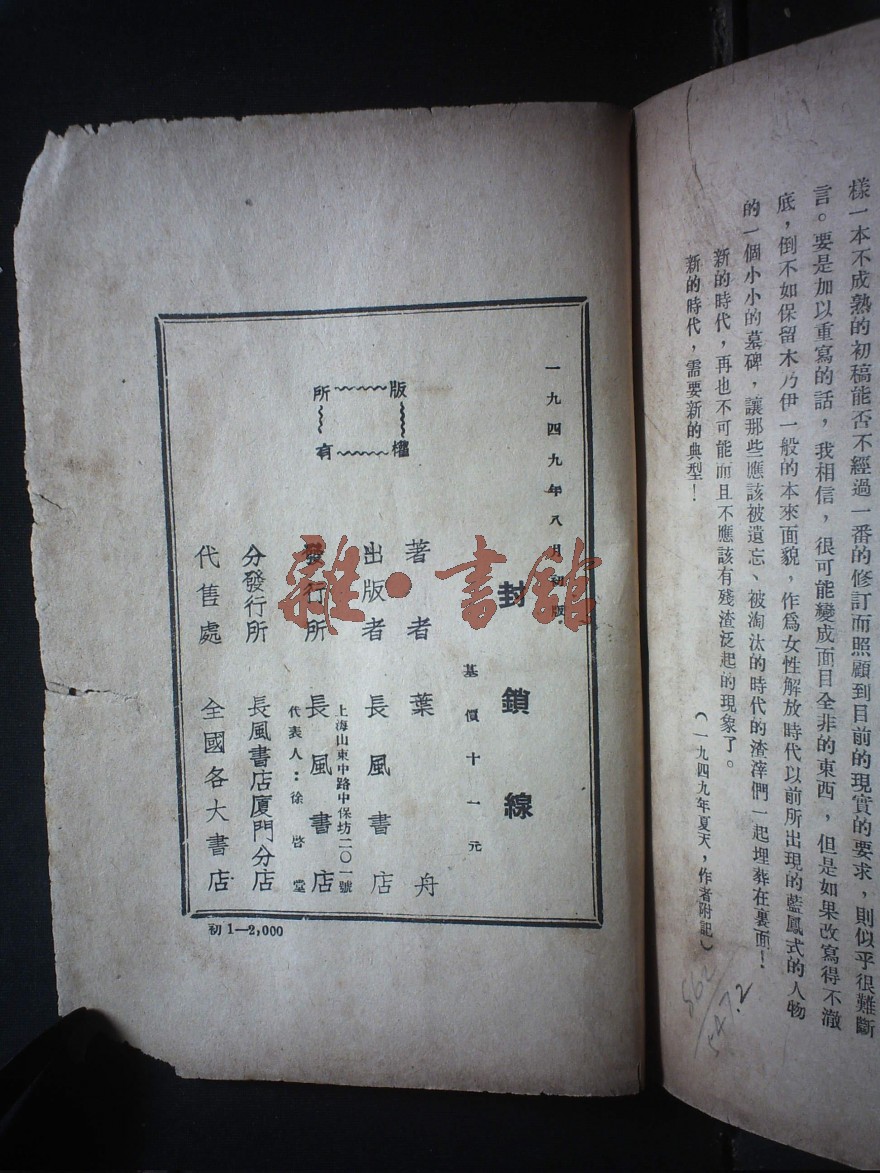 樣一本不成熟的初稿能否不經過一番的修訂而照顧到目前的現實的要求，則似乎很難斷
言。要是加以重寫的話，我相信，很可能變成面目全非的東西，但是如果改寫得不澈
底，倒不如保留木乃伊一般的本來面貌，作爲女性解放時代以前所出現的藍鳳式的人物
的一個小小的墓碑，讓那些應該被遺忘、被淘汰的時代的渣滓們一起埋葬在裏面！
新的時代，再也不可能而且不應該有殘渣泛起的現象了。
新的時代，需要新的典型！
（一九四九年夏天，作者附記）
862
547.2
一九四九年八月初版
封鎖線
基價十一元
著者 葉舟
出版者 長風書店
上海山東中路中保坊二〇一號
發行所 長風書店
代表人：徐啓堂
分發行所 長風書店廈門分店
代售處 全國各大書店
版權
所有
初1—2,000
雜·書館